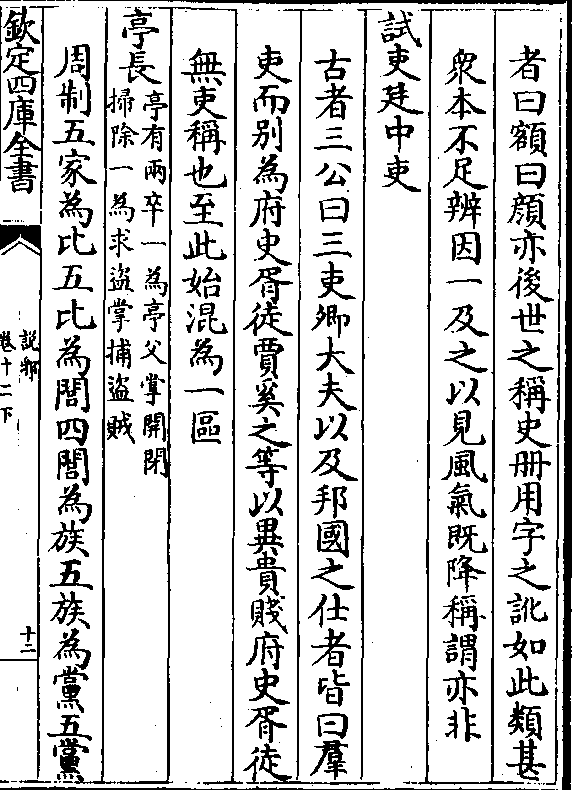 者曰額曰顔亦後世之稱史册用字之訛如此類甚
衆本不足辨因一及之以見風氣既降稱謂亦非
試吏廷中吏
古者三公曰三吏卿大夫以及邦國之仕者皆曰羣
吏而别為府史胥徒賈奚之等以異貴賤府史胥徒
無吏稱也至此始混為一區
亭長
亭有兩卒一為亭父掌開閉
掃除一為求盜掌捕盜賊
周制五家為比五比為閭四閭為族五族為黨五黨
欽定四庫全書
説郛
卷十二下
十二